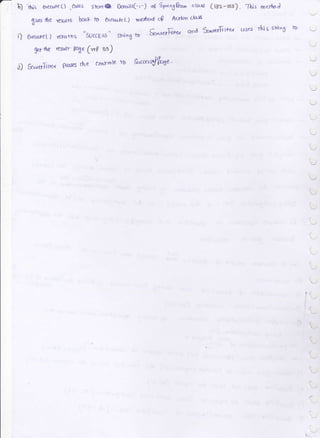 h) this execute() calls store Details(--) of SpringBean class (182-188). This method
gives the results back to execute() method of Action class
i) execute() returns "SUCCESS" string to ScreenFilter and ScreenFilter uses this string to
get the result page (ref 20)
j) ScreenFilter passes the control to Success page.